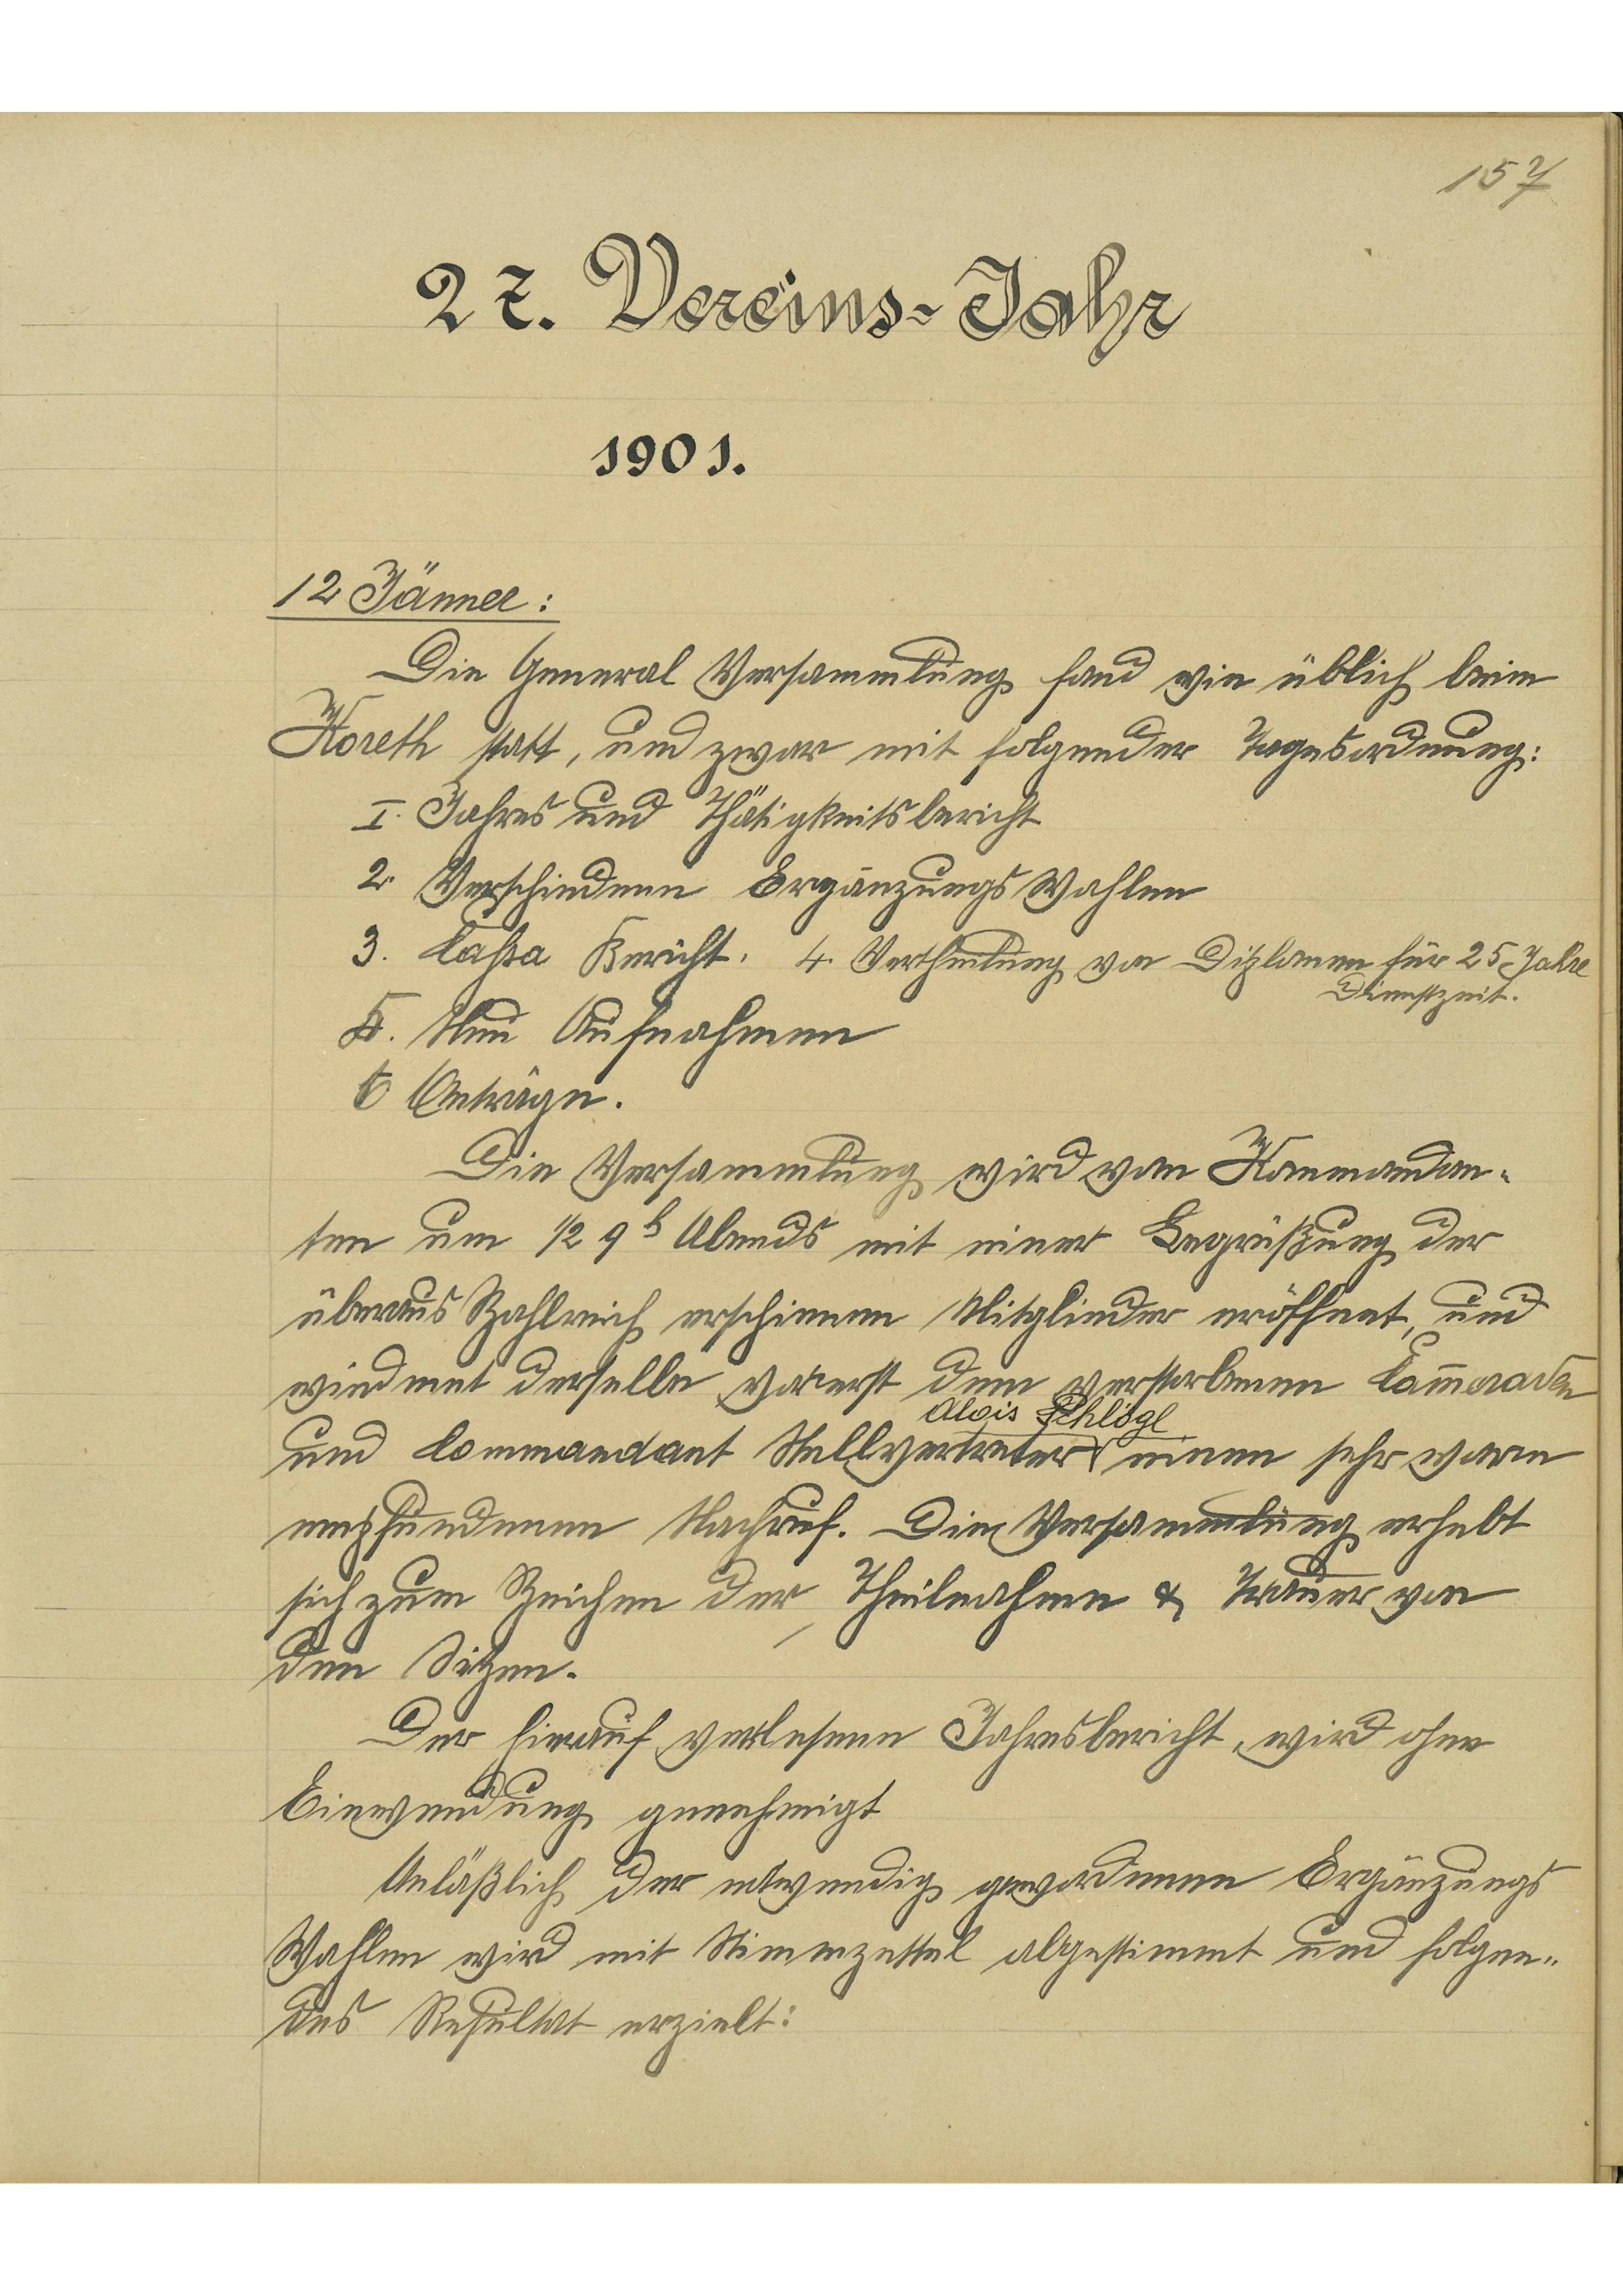 157
27. Vereins-Jahr
1901.
12 Jänner:
Die General Versammlung fand wie üblich beim
Koreth statt, und zwar mit folgender Tagesordnung:
I. Jahres und Thätigkeitsbericht
2. Verschiedene Ergänzungs Wahlen
3. Cassa Bericht. 4. Vertheilung von Diplomen für 25 Jahre
Dienstzeit.
5. Neu Aufnahmen
6 Anträge.
Die Versammlung wird vom Kommandan-
ten um 1/2 9 h Abends mit einer Begrüßung der
überaus Zahlreich erschienen Mitglieder eröffnet, und
wiedmet derselbe vorerst dem verstorbenen Cam̄eraden
Alois Schlögl
und Commandant Stellvertreter einen sehr warm
empfundenen Nachruf. Die Versammlung erhebt
sich zum Zeichen der Theilnahme & Trauer von
den Sitzen.
Der hierauf verlesene Jahresbericht, wird ohne
Einwendung genehmigt
Anläßlich der notwendig gewordenen Ergänzungs
Wahlen wird mit Stimmzettel abgestimmt und folgen-
des Resultat erzielt: